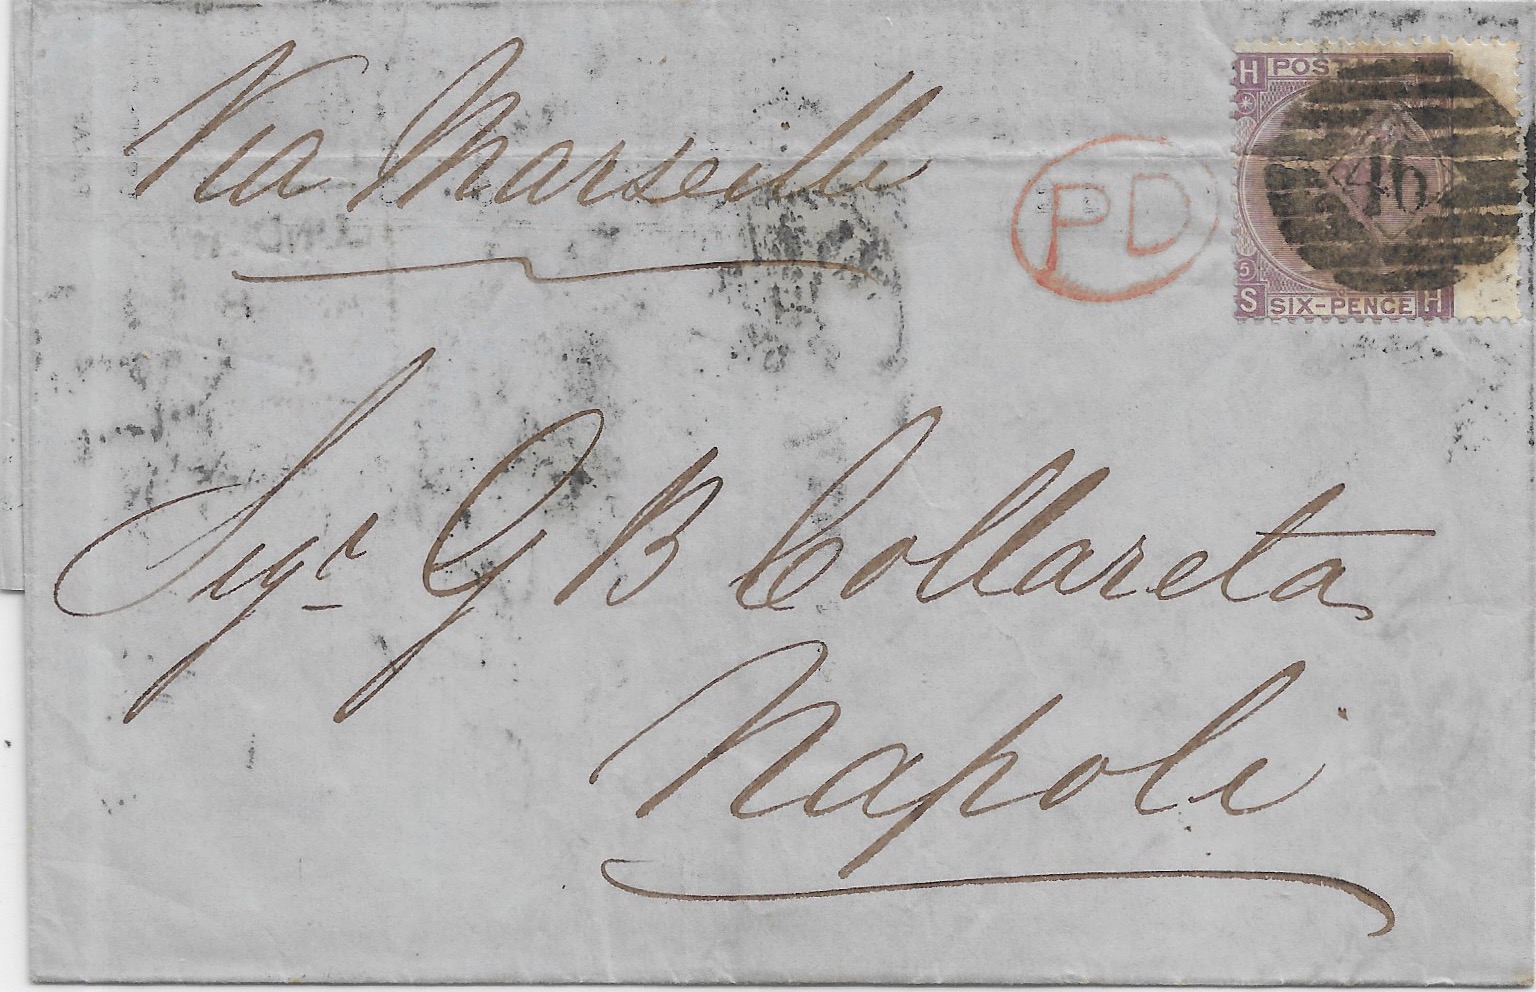 Via Marseille
PD
H POSTAGE H
46
5
S SIX-PENCE H
Sigr. G B Collareta
Napoli